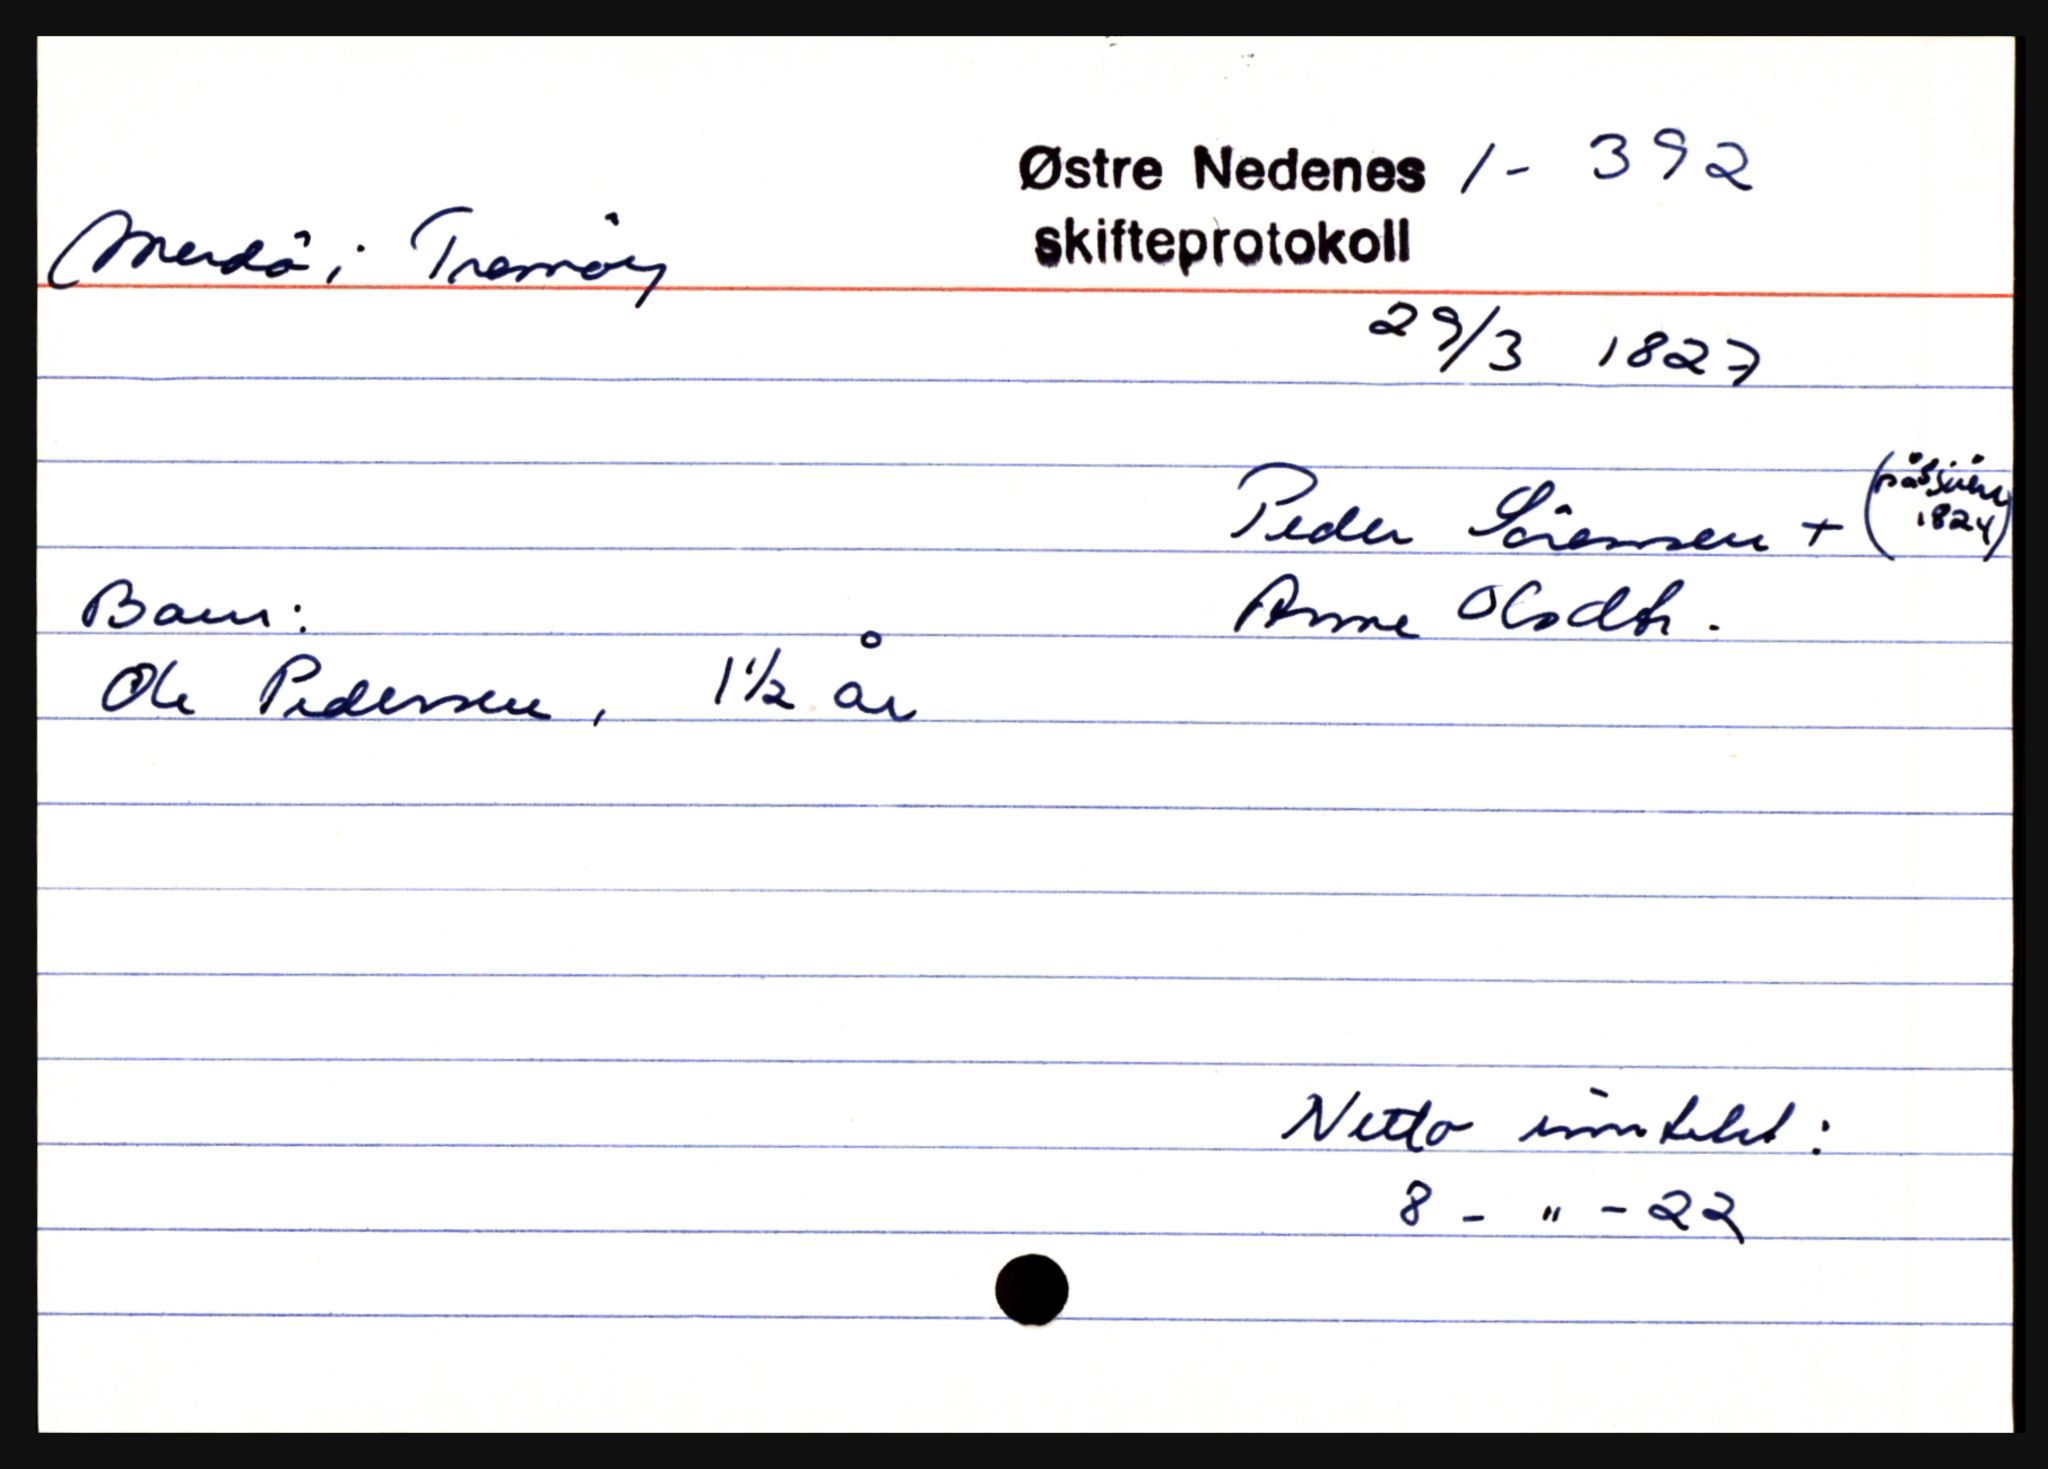 Østre Nedenes 1 - 392
skifteprotokoll
Merdö i Tromöy
29/3 1827
Peder Sörensen + (på sjöen
1824)
Barn: Anne Olsdtr.
Ole Pedersen, 1 1/2 år
Netto inntekt:
8 - " - 22